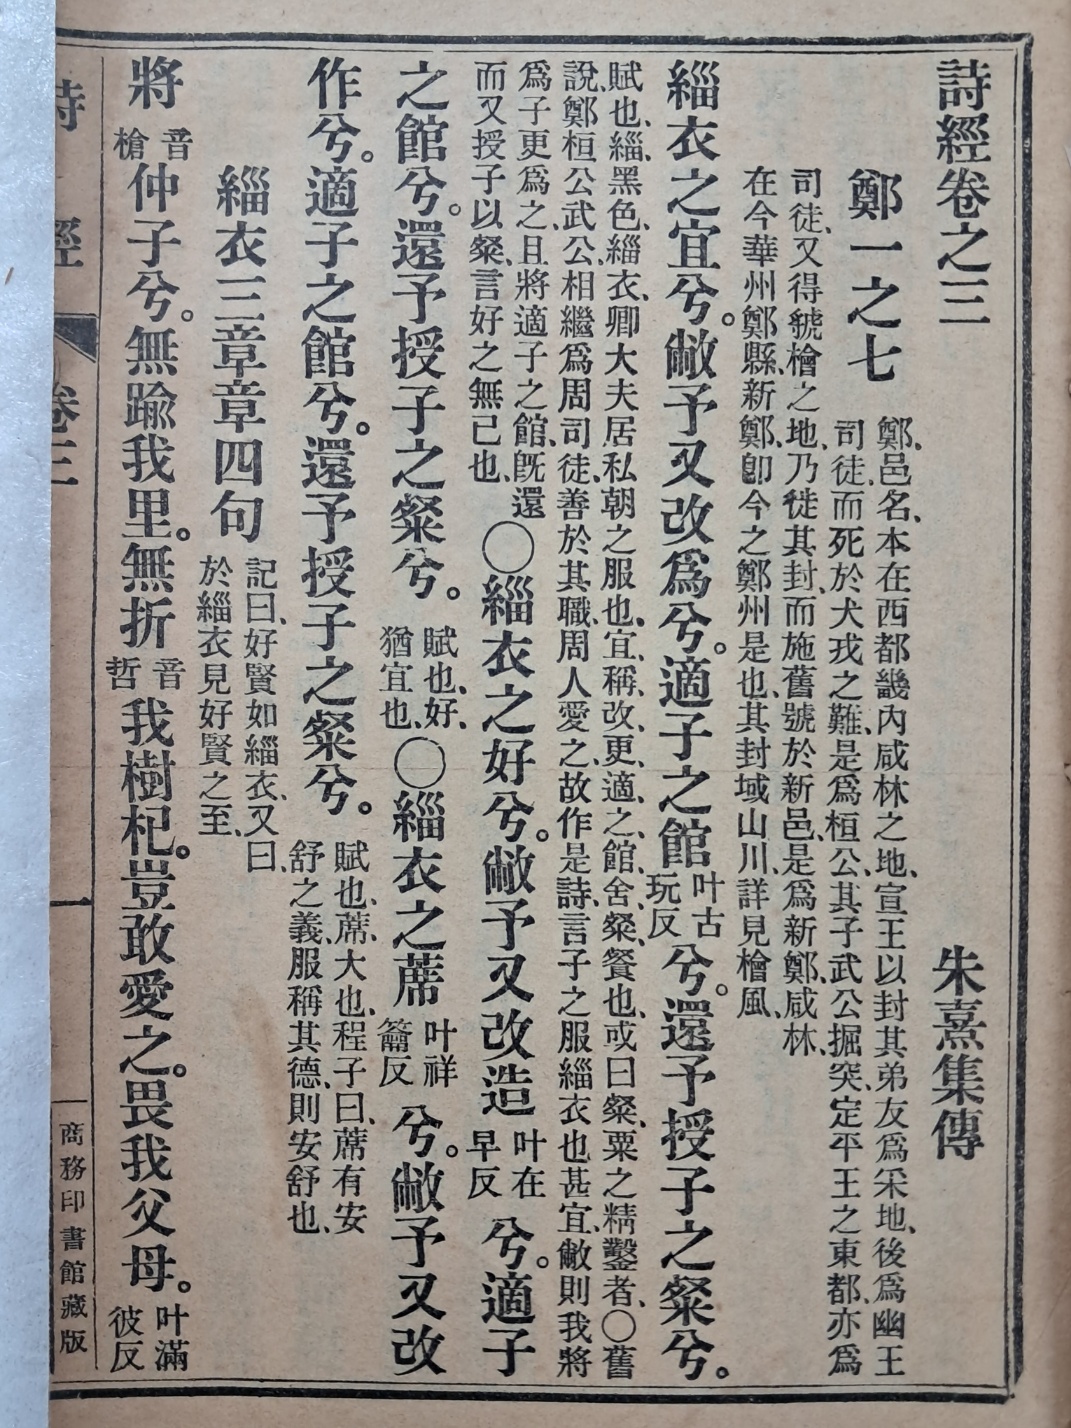 詩經卷之三
朱熹集傳
鄭一之七
鄭、邑名、本在西都畿內咸林之地、宣王以封其弟友爲采地、後爲幽王
司徒而死於犬戎之難、是爲桓公、其子武公掘突、定平王之東都、亦爲
司徒、又得虢檜之地、乃徙其封、而施舊號於新邑、是爲新鄭、咸林、
在今華州鄭縣、新鄭、卽今之鄭州是也、其封域山川、詳見檜風、
緇衣之宜兮。敝予又改爲兮。適子之館叶古玩反兮。還予授子之粲兮。
賦也、緇、黑色、緇衣、卿大夫居私朝之服也、宜、稱、改、更、適、之、館、舍、粲、餐也、或曰、粲、粟之精鑿者、〇舊
說、鄭桓公武公、相繼爲周司徒、善於其職、周人愛之、故作是詩、言子之服緇衣也甚宜、敝則我將
爲子更爲之、且將適子之館、旣還
而又授子以粲、言好之無已也、
〇緇衣之好兮。敝予又改造叶在早反兮。適子
之館兮。還予授子之粲兮。賦也、好、猶宜也、〇緇衣之蓆叶祥籥反兮。敝予又改
作兮。適子之館兮。還予授子之粲兮。賦也、蓆、大也、程子曰、蓆有安舒之義、服稱其德、則安舒也、
緇衣三章章四句記曰、好賢如緇衣、又曰、於緇衣見好賢之至、
將音槍仲子兮。無踰我里。無折音哲我樹杞。豈敢愛之。畏我父母。叶滿彼反
詩經 卷三 一 商務印書館藏版